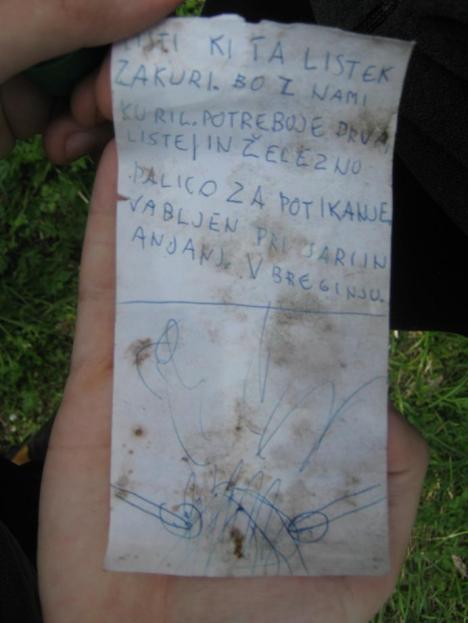 TISTI KI TA LISTEK
ZAKURI. BO Z NAMI
KURIL. POTREBUJE DRVA
LISTEJ IN ŽELEZNO
PALICO ZA POTIKANJE
VABLJEN PRI SARI IN
ANJANJ. V BREGINJU.